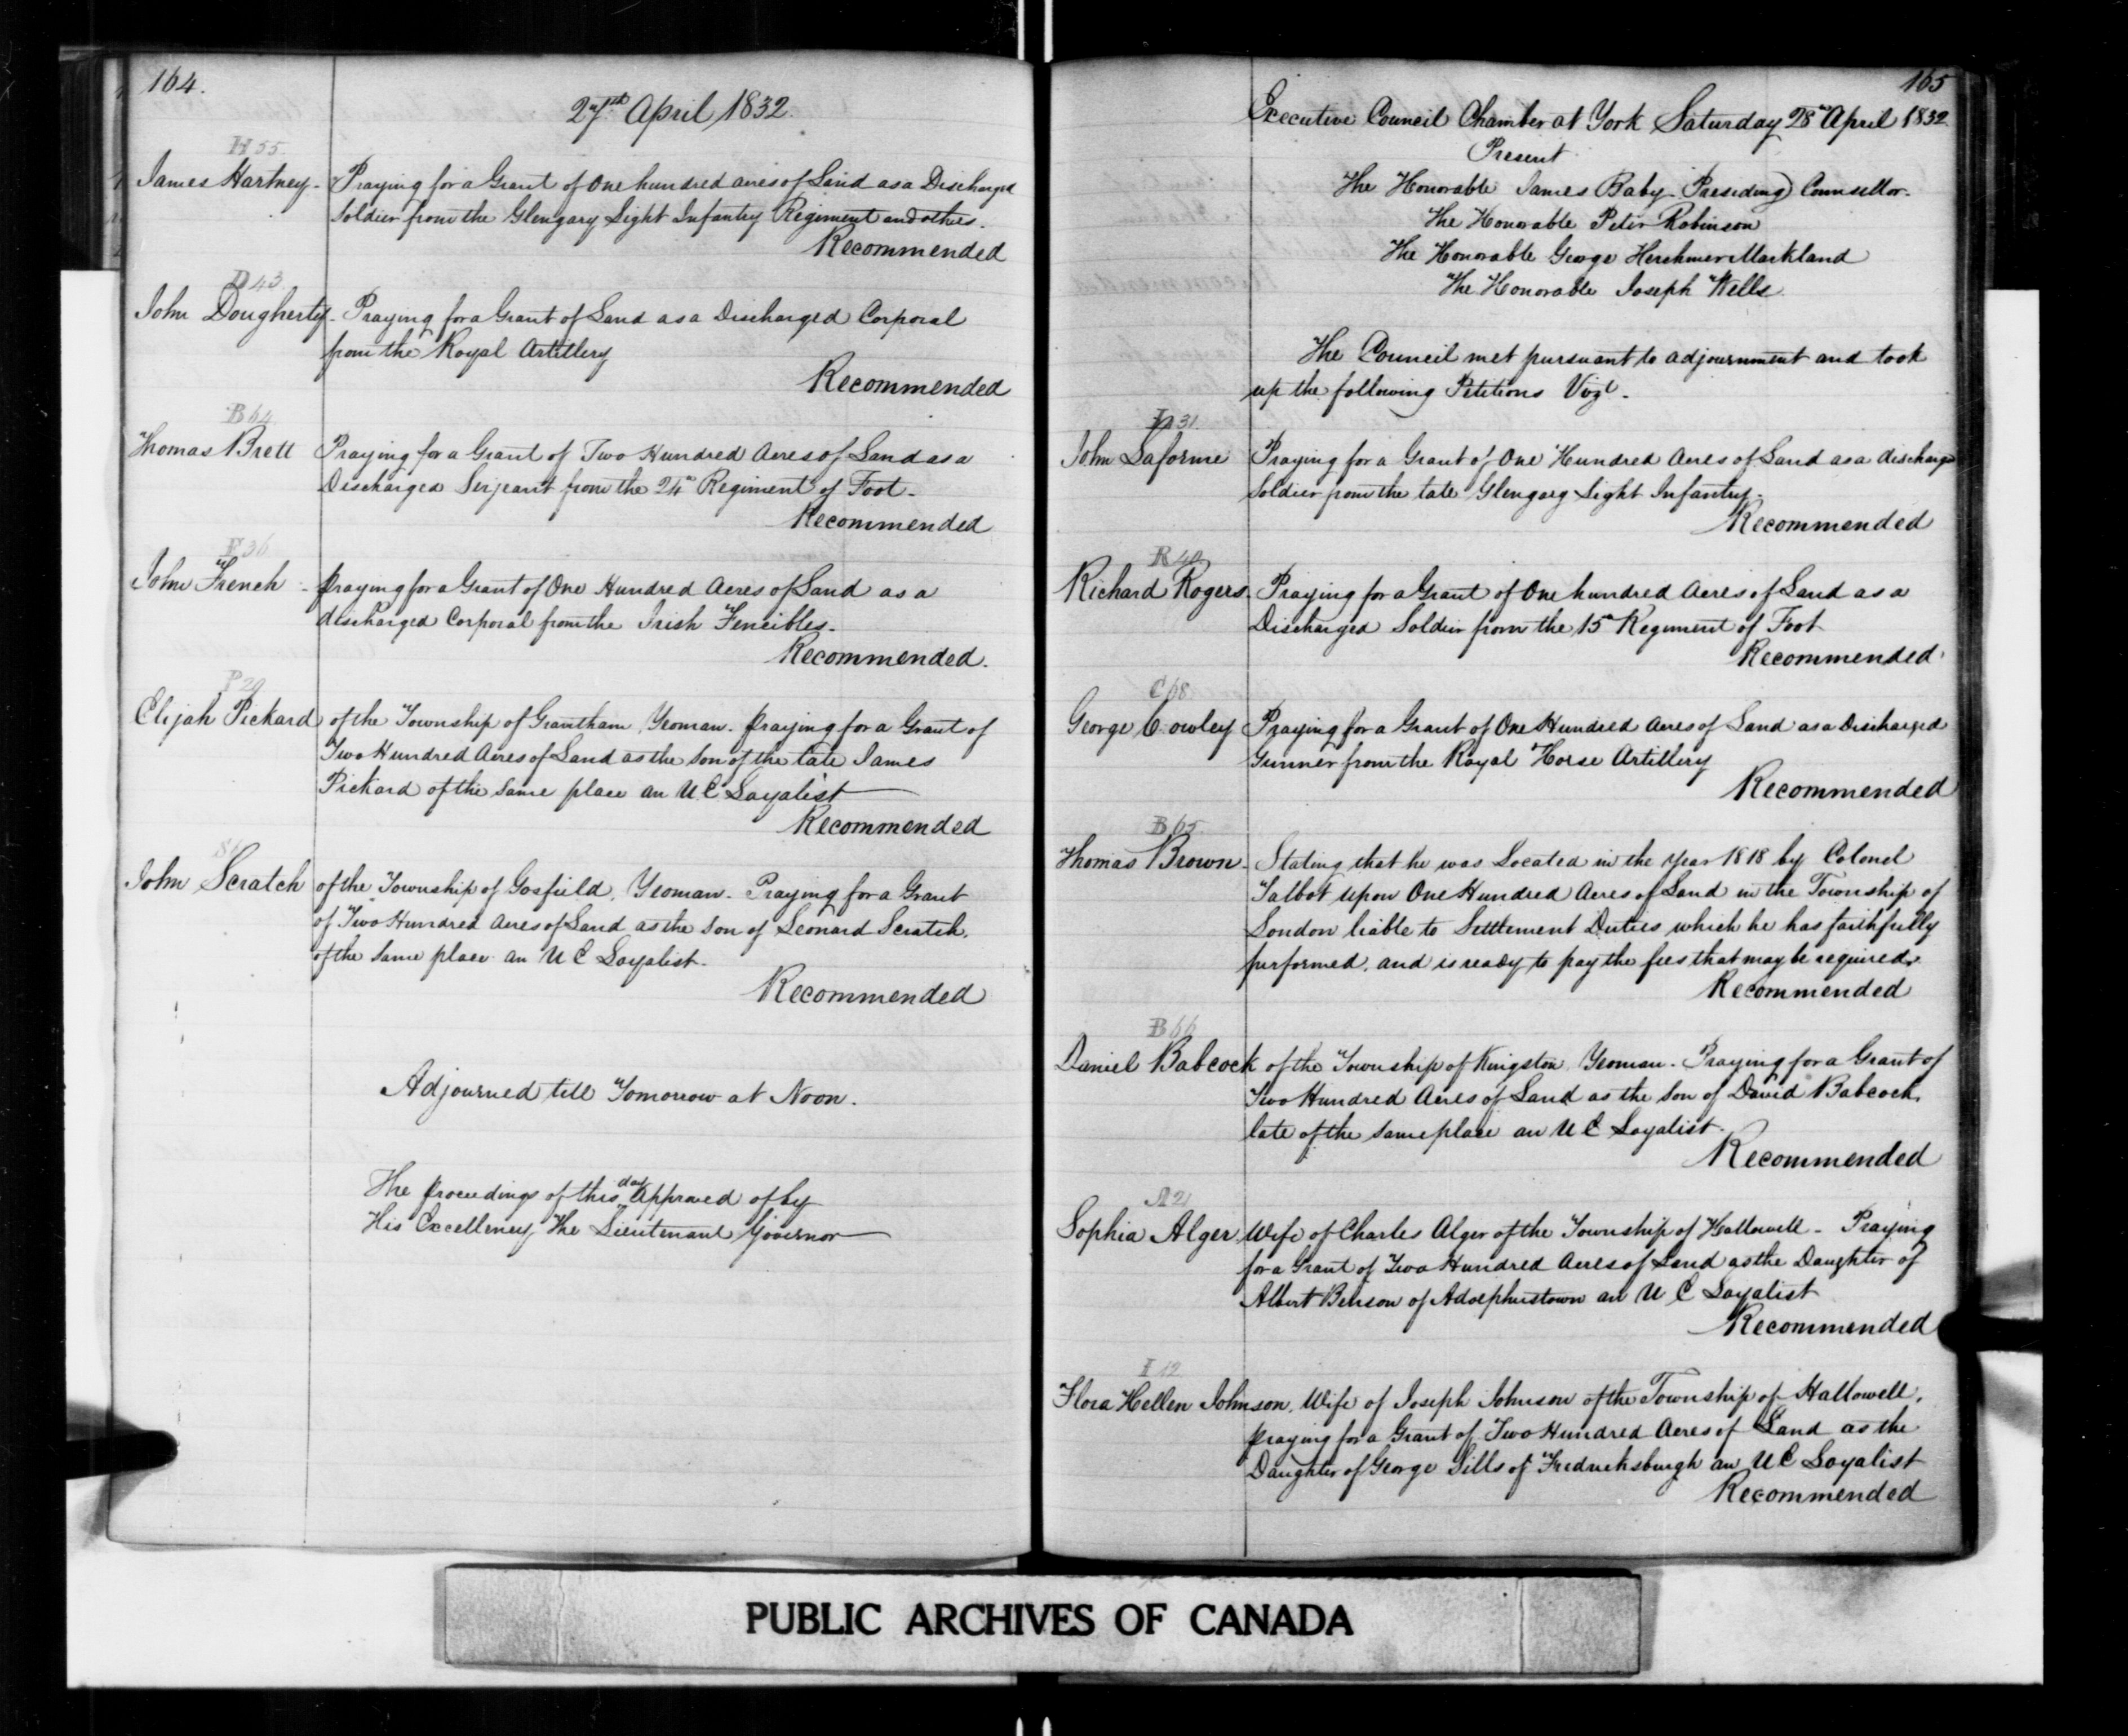 164.
27th April 1832.
H 55
James Hartney - Praying for a Grant of One hundred acres of Land as a Discharged
Soldier from the Glengary Light Infantry Regiment and others.
Recommended
D 43
John Dougherty - Praying for a Grant of Land as a Discharged Corporal
from the Royal Artillery
Recommended
B 64
Thomas Brett Praying for a Grant of Two Hundred Acres of Land as a
Discharged Serjeant from the 24th Regiment of Foot -
Recommended
F 36
John French - praying for a Grant of One Hundred Acres of Land as a
discharged Corporal from the Irish Fencibles -
Recommended.
P 29
Elijah Pickard of the Township of Grantham Yeoman - praying for a Grant of
Two Hundred Acres of Land as the Son of the late James
Pickard of the Same place an U E Loyalist
Recommended
John Scratch of the Township of Gosfield, Yeoman - Praying for a Grant
of Two Hundred Acres of Land as the Son of Leonard Scratch,
of the Same place an U E Loyalist -
Recommended
Adjourned till Tomorrow at Noon.
The proceedings of this day Approved of by
His Excellency The Lieutenant Governor
165
Executive Council Chamber at York Saturday 28th April 1832
Present
The Honorable James Baby - Presiding Counsellor.
The Honorable Peter Robinson
The Honorable George Herchmer Markland
The Honorable Joseph Wells
The Council met pursuant to adjournment and took
up the following Petitions Vizt -
31
John Laforme Praying for a Grant of One Hundred Acres of Land as a discharge
Soldier from the late Glengary Light Infantry -
Recommended
R 40
Richard Rogers - Praying for a Grant of One hundred Acres of Land as a
Discharged Soldier from the 15th Regiment of Foot
Recommended
C 68
George Cowley Praying for a Grant of One Hundred Acres of Land as a Discharged
Gunner from the Royal Horse Artillery
Recommended
B 65
Thomas Brown - Stating that he was Located in the Year 1818 by Colonel
Talbot upon One Hundred Acres of Land in the Township of
London liable to Settlement Duties which he has faithfully
performed, and is ready to pay the fees that may be required.
Recommended
B 66
Daniel Babcock of the Township of Kingston Yeoman - Praying for a Grant of
Two Hundred Acres of Land as the Son of David Babcock,
late of the Same place an U E Loyalist -
Recommended
A 21
Sophia Alger, Wife of Charles Alger of the Township of Hallowell - Praying
for a Grant of Two Hundred Acres of Land as the Daughter of
Albert Benson of Adolphustown an U E Loyalist
Recommended
I 12
Flora Hellen Johnson, Wife of Joseph Johnson of the Township of Hallowell,
praying for a Grant of Two Hundred Acres of Land as the
Daughter of George Sills of Fredricksburgh an U E Loyalist
Recommended
PUBLIC ARCHIVES OF CANADA